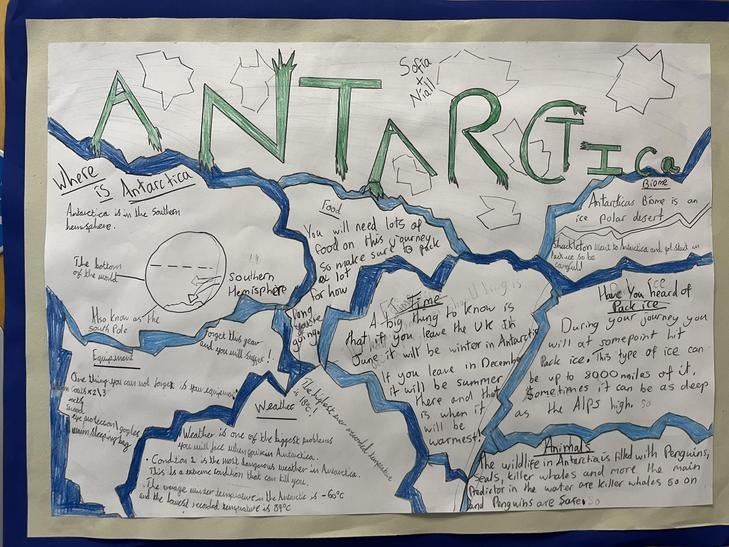 ANTARCTica
Sofia
+
Niall
Where
is Antarctica
Antarctica is in the Southern
hemisphere.
The bottom
of the world
Southern
Hemisphere
Also know as the
south Pole
Food
You will need lots of
food on this journey
so make sure to pack
a lot
for how
long
you're
going
Biome
Antarticas Biome is an
ice polar desert
Shackleton went to Antarctica and got stuck in
ice so be
careful!
Equipment
forget this gear
and you will suffer!
One thing you can not forget is you equipment
coats x2\3
eye protection\goggles
warm sleeping bag
Time
A big thing to know is
that if you leave the UK in
June it will be winter in Antarctica
If you leave in December
it will be summer
there and that
is when it
will be
warmest!
Have You heard of
Pack ice
During your journey you
will at somepoint hit
Pack ice. This type of ice can
be up to 8000 miles of it,
Sometimes it can be as deep
as the Alps high.
Weather
The highest ever recorded temperature
is 18°C!
Weather is one of the biggest problems
you will face when going in Antarctica.
• Condition 1 is the most dangerous weather in Antarctica.
This is a extreme condition that can kill you.
• The average winter temperature in the Antarctic is -60°C
and the lowest recorded temperature is 89°C
Animals
The wildlife in Antarctica is filled with Penguins,
Seals, killer whales and more the main
Predictor in the water are killer whales so on
land Penguins are safe.